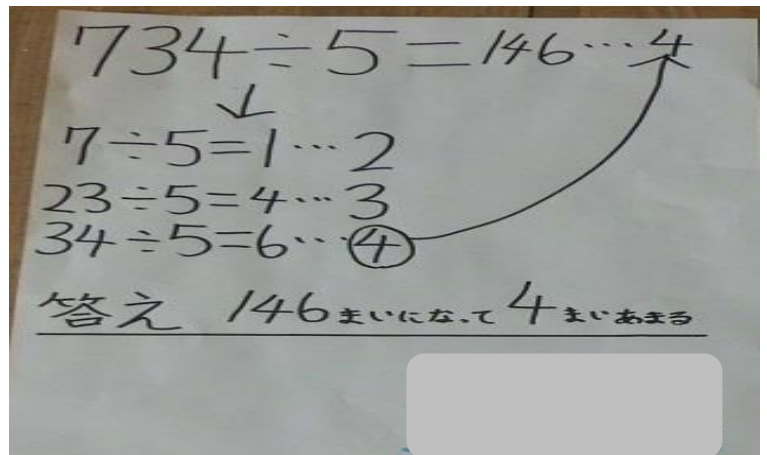 734÷5=146…4
↓
7÷5=1…2
23÷5=4…3
34÷5=6…④
答え 146まいになって4まいあまる